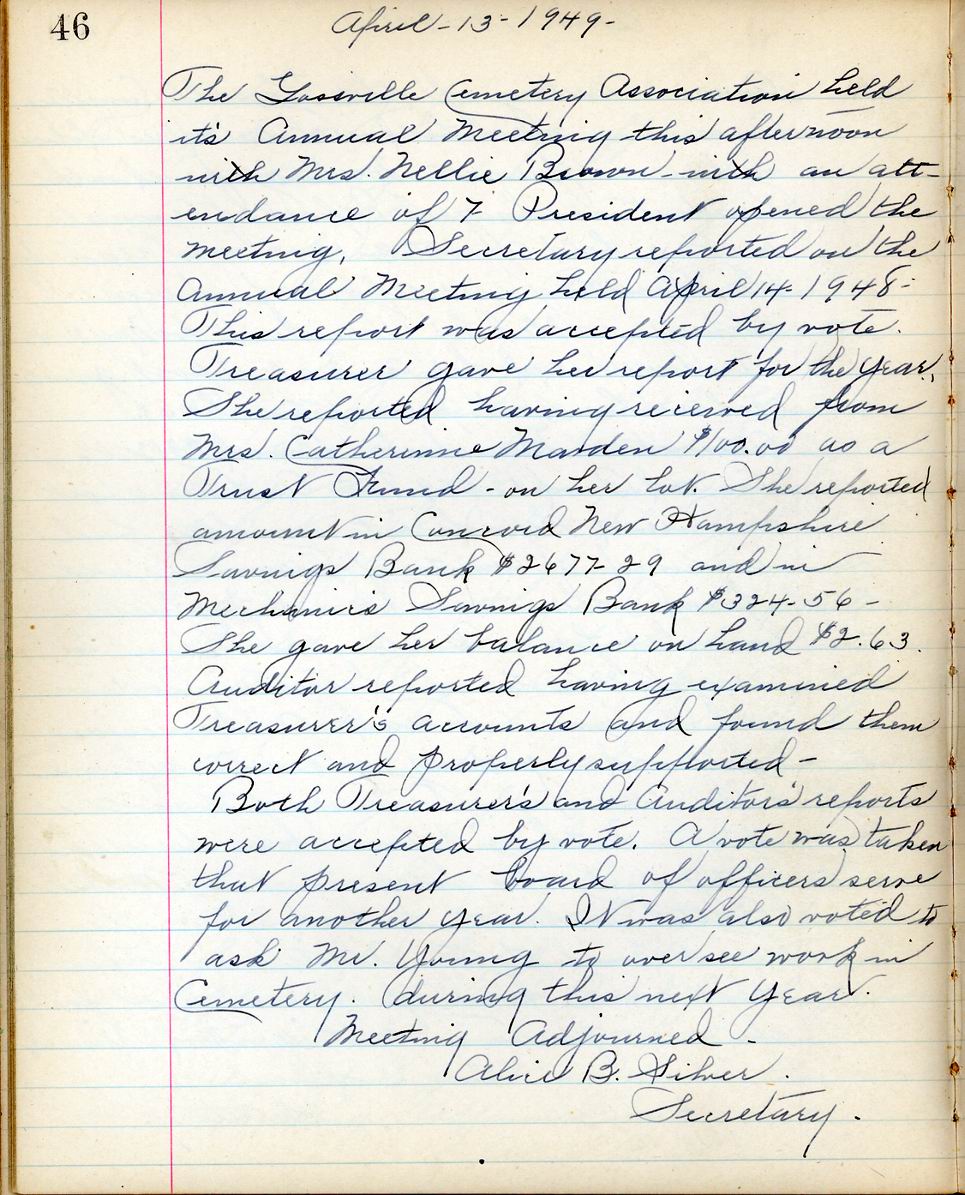 46
April - 13 - 1949 -
The Gossville Cemetery Association held
it's Annual Meeting this afternoon
with Mrs. Nellie Brown - with an att-
endance of 7 President opened the
meeting. Secretary reported on the
Annual Meeting held April 14 - 1948 -
This report was accepted by vote.
Treasurer gave her report for the year.
She reported having recieved from
Mrs. Catherinne Marden $100.00 as a
Trust Fund - on her lot. She reported
amount in Concord New Hampshire
Savings Bank $2677 29 and in
Mechanic's Savings Bank $324 - 56 -
She gave her balance on hand $2.63.
Auditor reported having examined
Treasurer's accounts and found them
correct and properly supported -
Both Treasurer's and Auditors' reports
were accepted by vote. A vote was taken
that present board of officers serve
for another year. It was also voted to
ask Mr. Young to over see work in
Cemetery. during this next Year.
Meeting Adjourned -
Alice B. Silver.
Secretary.